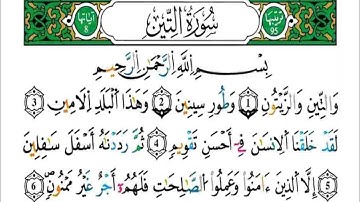 ترتيبها 95 سُورَةُ التِّين آياتها 8
بِسْمِ اللَّهِ الرَّحْمَٰنِ الرَّحِيمِ
وَالتِّينِ وَالزَّيْتُونِ 1 وَطُورِ سِينِينَ 2 وَهَٰذَا الْبَلَدِ الْأَمِينِ 3
لَقَدْ خَلَقْنَا الْإِنسَانَ فِي أَحْسَنِ تَقْوِيمٍ 4 ثُمَّ رَدَدْنَاهُ أَسْفَلَ سَافِلِينَ
5 إِلَّا الَّذِينَ ءَامَنُوا وَعَمِلُوا الصَّالِحَاتِ فَلَهُمْ أَجْرٌ غَيْرُ مَمْنُونٍ 6